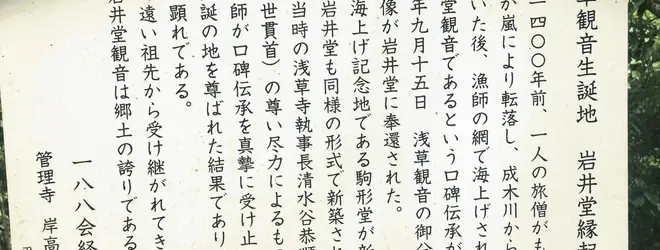 草観音生誕地　岩井堂縁起
一四〇〇年前、一人の旅僧がも
が嵐により転落し、成木川から
いた後、漁師の網で海上げされ
堂観音であるという口碑伝承が
年九月十五日　浅草観音の御分
像が岩井堂に奉還された。
海上げ記念地である駒形堂が新
岩井堂も同様の形式で新築され
当時の浅草寺執事長清水谷恭順
世貫首）の尊い尽力によるもの
師が口碑伝承を真摯に受け止
誕の地を尊ばれた結果であり
顕れである。
遠い祖先から受け継がれてき
岩井堂観音は郷土の誇りである
一八八会経
管理寺　岸高